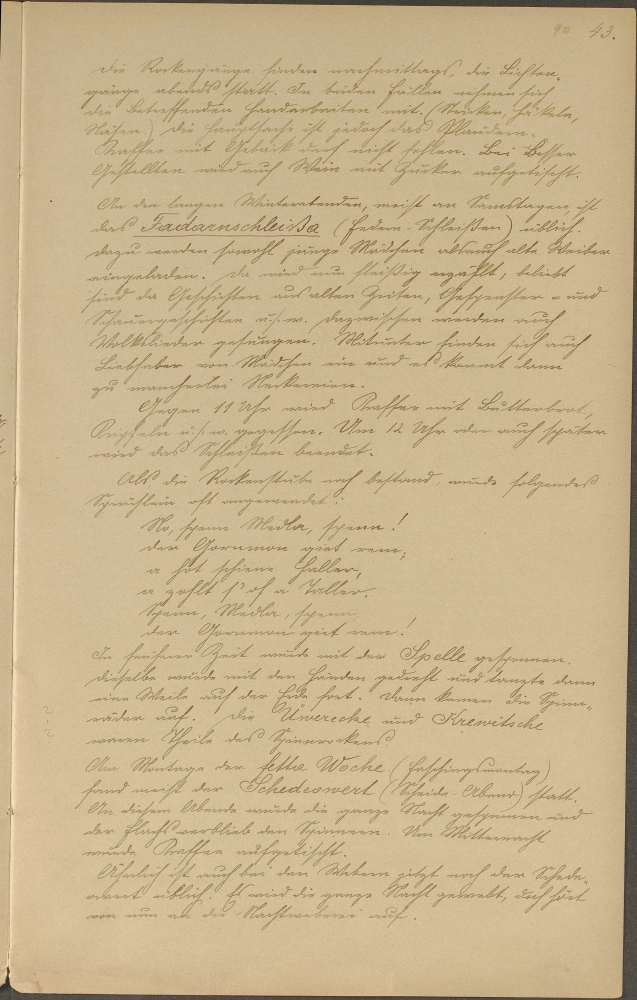 43.
Die Rockengänge finden nachmittags, die Lichten-
gänge abends statt. In beiden Fällen nehmen sich
die betreffenden Handarbeiten mit. (Stricken, Häkeln,
Nähen) Die Hauptsache ist jedoch das Plaudern.
Kaffee mit Gebäck darf nicht fehlen. Bei Besser
Gestellten wird auch Wein mit Zucker aufgetischt.
An den langen Winterabenden, meist an Samstagen, ist
das Fadarnschleißa (Federn-Schleißen) üblich.
Dazu werden sowohl junge Mädchen als auch alte Weiber
eingeladen. Da wird nun fleißig erzählt, beliebt
sind da Geschichten aus alten Zeiten, Gespenster- und
Schauergeschichten u.s.w. Dazwischen werden auch
Volkslieder gesungen. Mitunter finden sich auch
Liebhaber von Mädchen ein und es kommt dann
zu mancherlei Neckereien.
Gegen 11 Uhr wird Kaffee mit Butterbrot,
Kipfeln u.s.w. gegessen. Um 12 Uhr oder auch später
wird das Schleißen beendet.
Als die Rockenstube noch bestand, wurde folgendes
Sprüchlein oft angewendet:
No, spenn Medla, spenn!
der Gornmon giet rem;
a hot schiene Haller,
a zohlt s' of a Taller.
Spenn, Medla, spenn,
der Gornmon giet rem!
In früherer Zeit wurde mit der Spelle gesponnen.
Dieselbe wurde mit den Händen gedreht und tanzte dann
eine Weile auf der Erde fort. Dann kamen die Spinn-
räder auf. Die Üwerecke und Krewitsche
waren Theile des Spinnrockens.
Am Montage der fetta Woche (Faschingsmontag)
fand meist der Schedeowert (Scheide-Abend) statt.
An diesem Abende wurde die ganze Nacht gesponnen und
der Flachs verblieb den Spinnern. Um Mitternacht
wurde Kaffee aufgetischt.
Ähnlich ist auch bei den Webern jetzt noch der Schede-
owert üblich. Es wird die ganze Nacht gewebt, doch hört
von nun an die Nachtweberei auf.